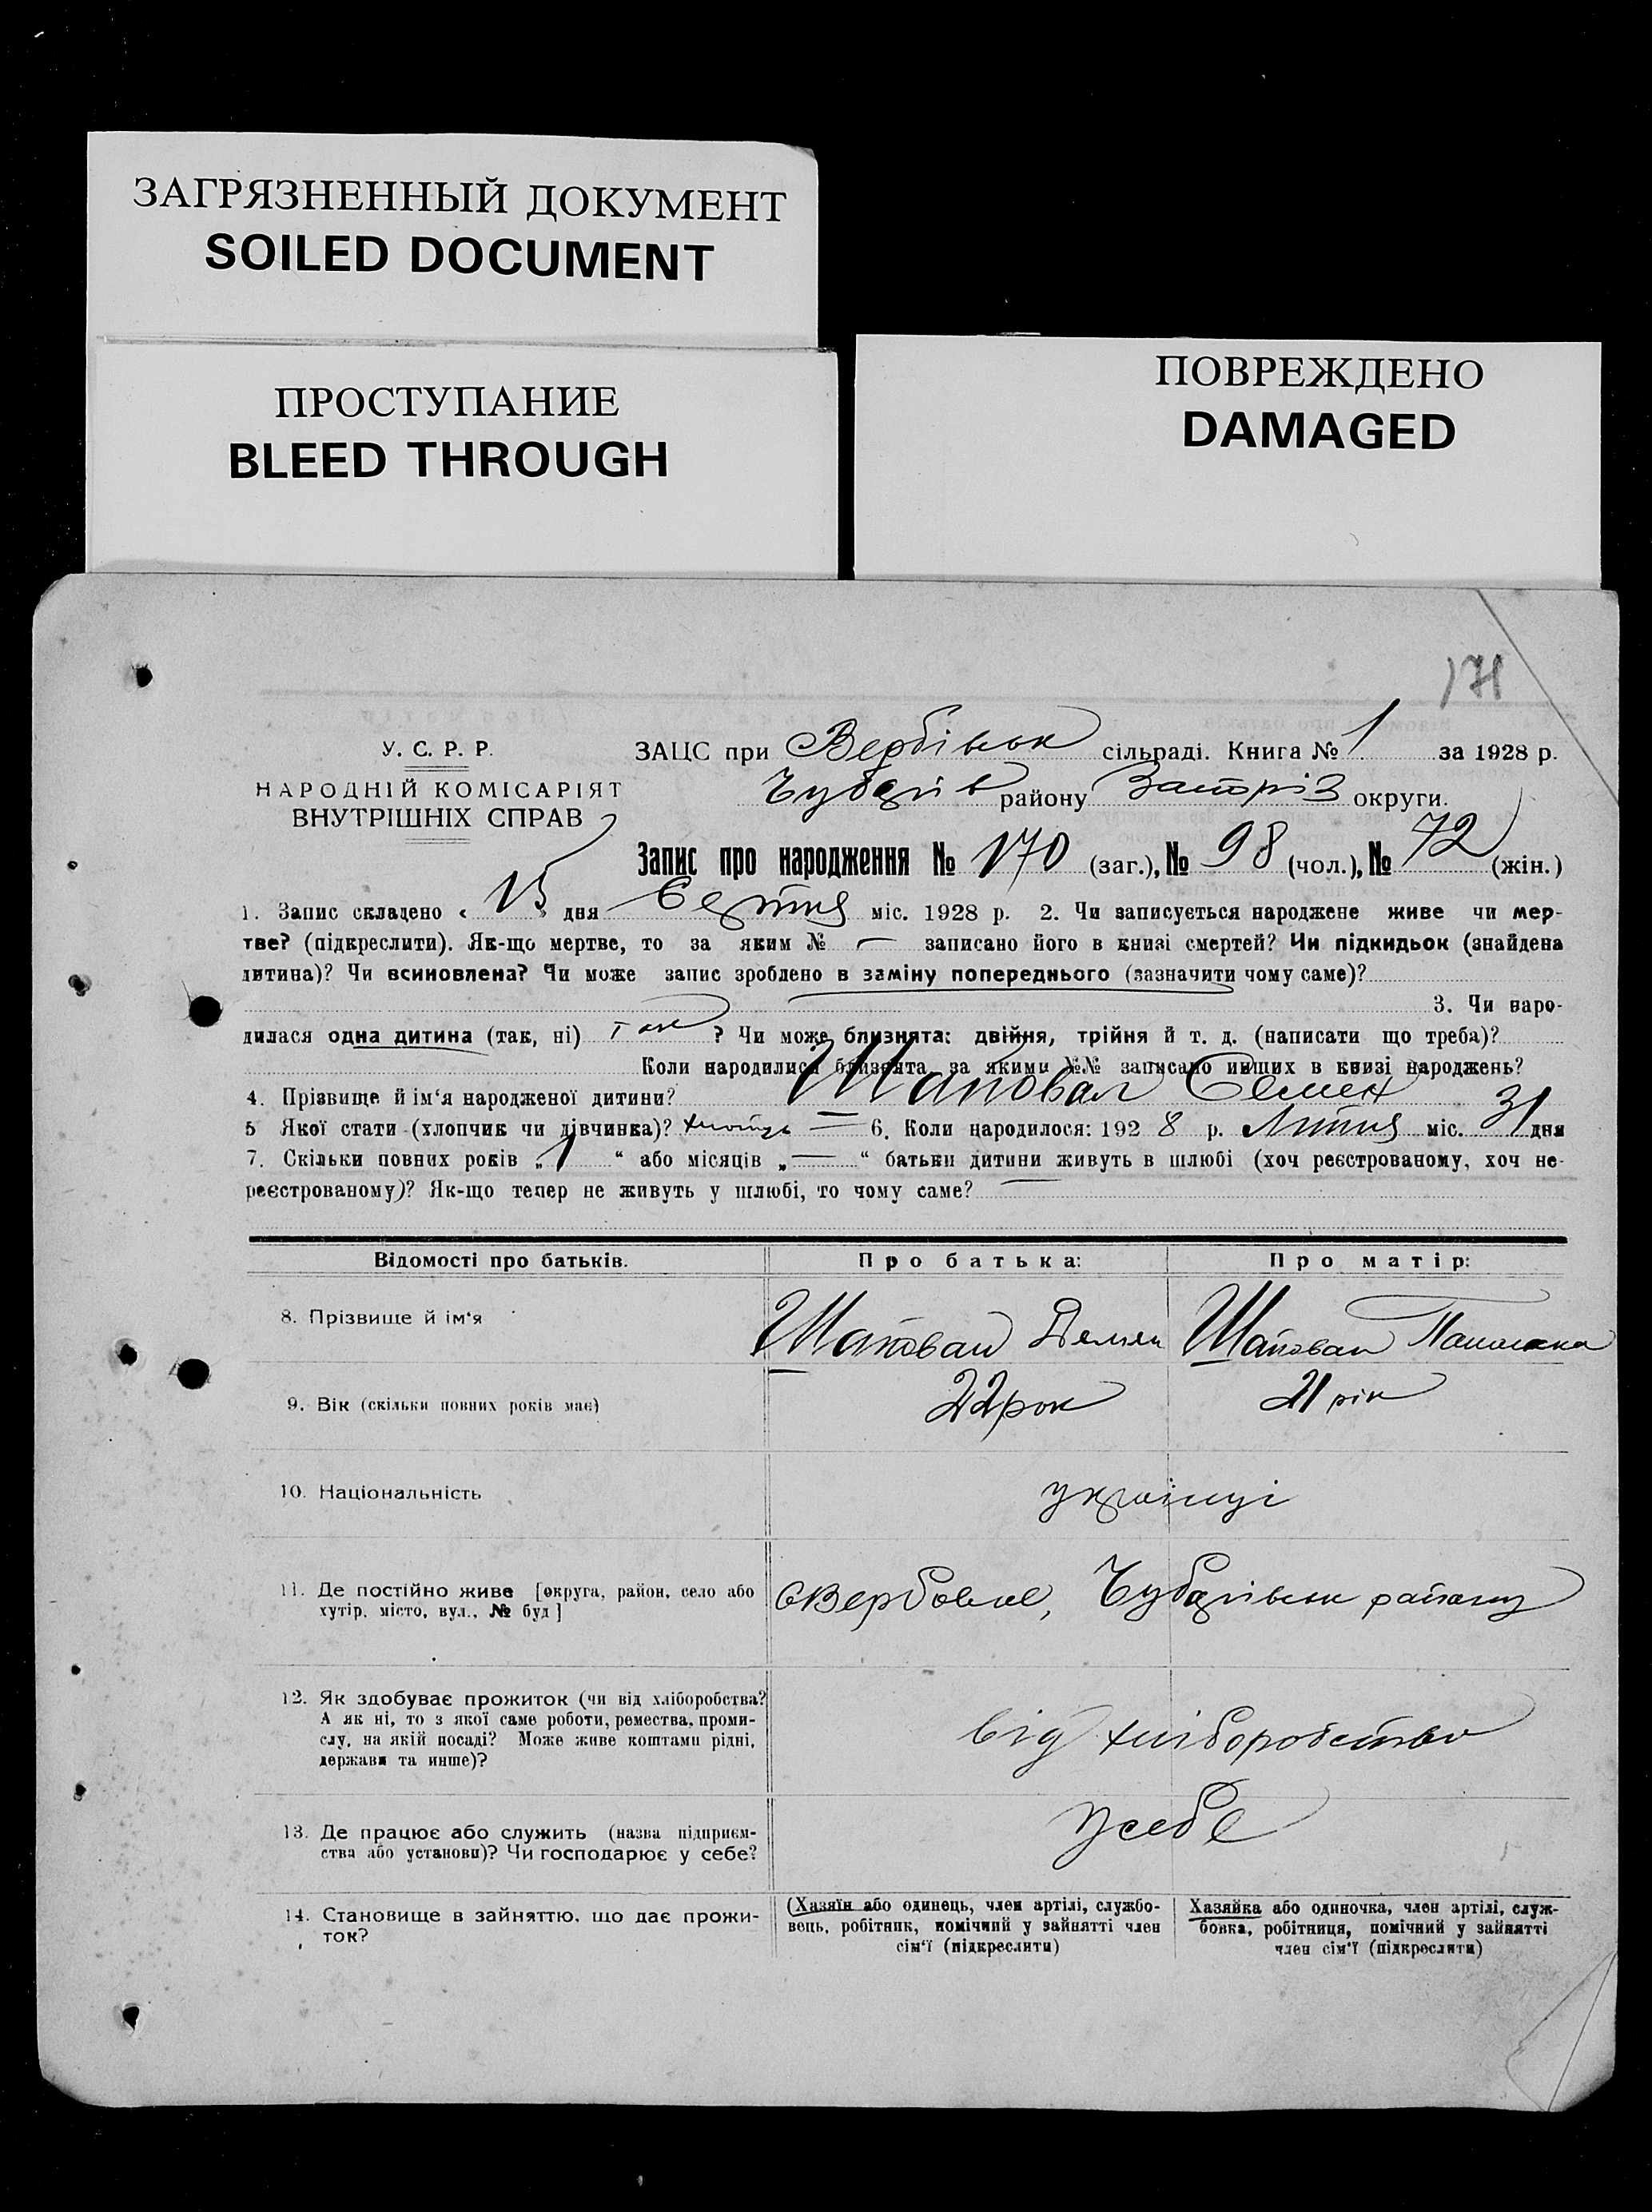 ЗАГРЯЗНЕННЫЙ ДОКУМЕНТ
SOILED DOCUMENT
ПРОСТУПАНИЕ
BLEED THROUGH
ПОВРЕЖДЕНО
DAMAGED
171
У. С. Р. Р.
НАРОДНІЙ КОМІСАРІЯТ
ВНУТРІШНІХ СПРАВ
ЗАЦС при Вербівськ сільраді. Книга № 1 за 1928 р.
Чубарів району Запоріз округи.
Запис про народження № 170 (заг.), № 98 (чол.), № 72 (жін.)
1. Запис складено « 15 » дня Серпня міс. 1928 р. 2. Чи записується народжене живе чи мер-
тве? (підкреслити). Як-що мертве, то за яким № — записано його в книзі смертей? Чи підкидьок (знайдена
дитина)? Чи всиновлена? Чи може запис зроблено в заміну попереднього (зазначити чому саме)?
3. Чи наро-
дилася одна дитина (так, ні) так ? Чи може близнята: двійня, трійня й т. д. (написати що треба)?
Коли народилися близнята, за якими №№ записано инших в книзі народжень?
4. Прізвище й ім'я народженої дитини? Шаповал Семен
5 Якої стати (хлопчик чи дівчинка)? хлопець — 6. Коли народилося: 1928 р. Липня міс. 31 дня
7. Скільки повних років „ 1 “ або місяців „ — “ батьки дитини живуть в шлюбі (хоч реєстрованому, хоч не-
реєстрованому)? Як-що тепер не живуть у шлюбі, то чому саме? —
Відомості про батьків. Про батька: Про матір:
8. Прізвище й ім'я Шаповал Демян Шаповал Палажка
9. Вік (скільки повних років має) 22 рок 21 рік
10. Національність українці
11. Де постійно живе [округа, район, село або
хутір, місто, вул., № буд]
с Вербове, Чубарівськ району
12. Як здобуває прожиток (чи від хліборобства?
А як ні, то з якої саме роботи, ремества, проми-
слу, на якій посаді? Може живе коштами рідні,
держави та инше)?
від хліборобства
13. Де працює або служить (назва підприєм-
ства або установи)? Чи господарює у себе?
у себе
14. Становище в зайняттю, що дає прожи-
ток?
(Хазяїн або одинець, член артілі, службо-
вець, робітник, помічний у зайнятті член
сім'ї (підкреслити)
Хазяйка або одиночка, член артілі, служ-
бовка, робітниця, помічний у зайнятті
член сім'ї (підкреслити)